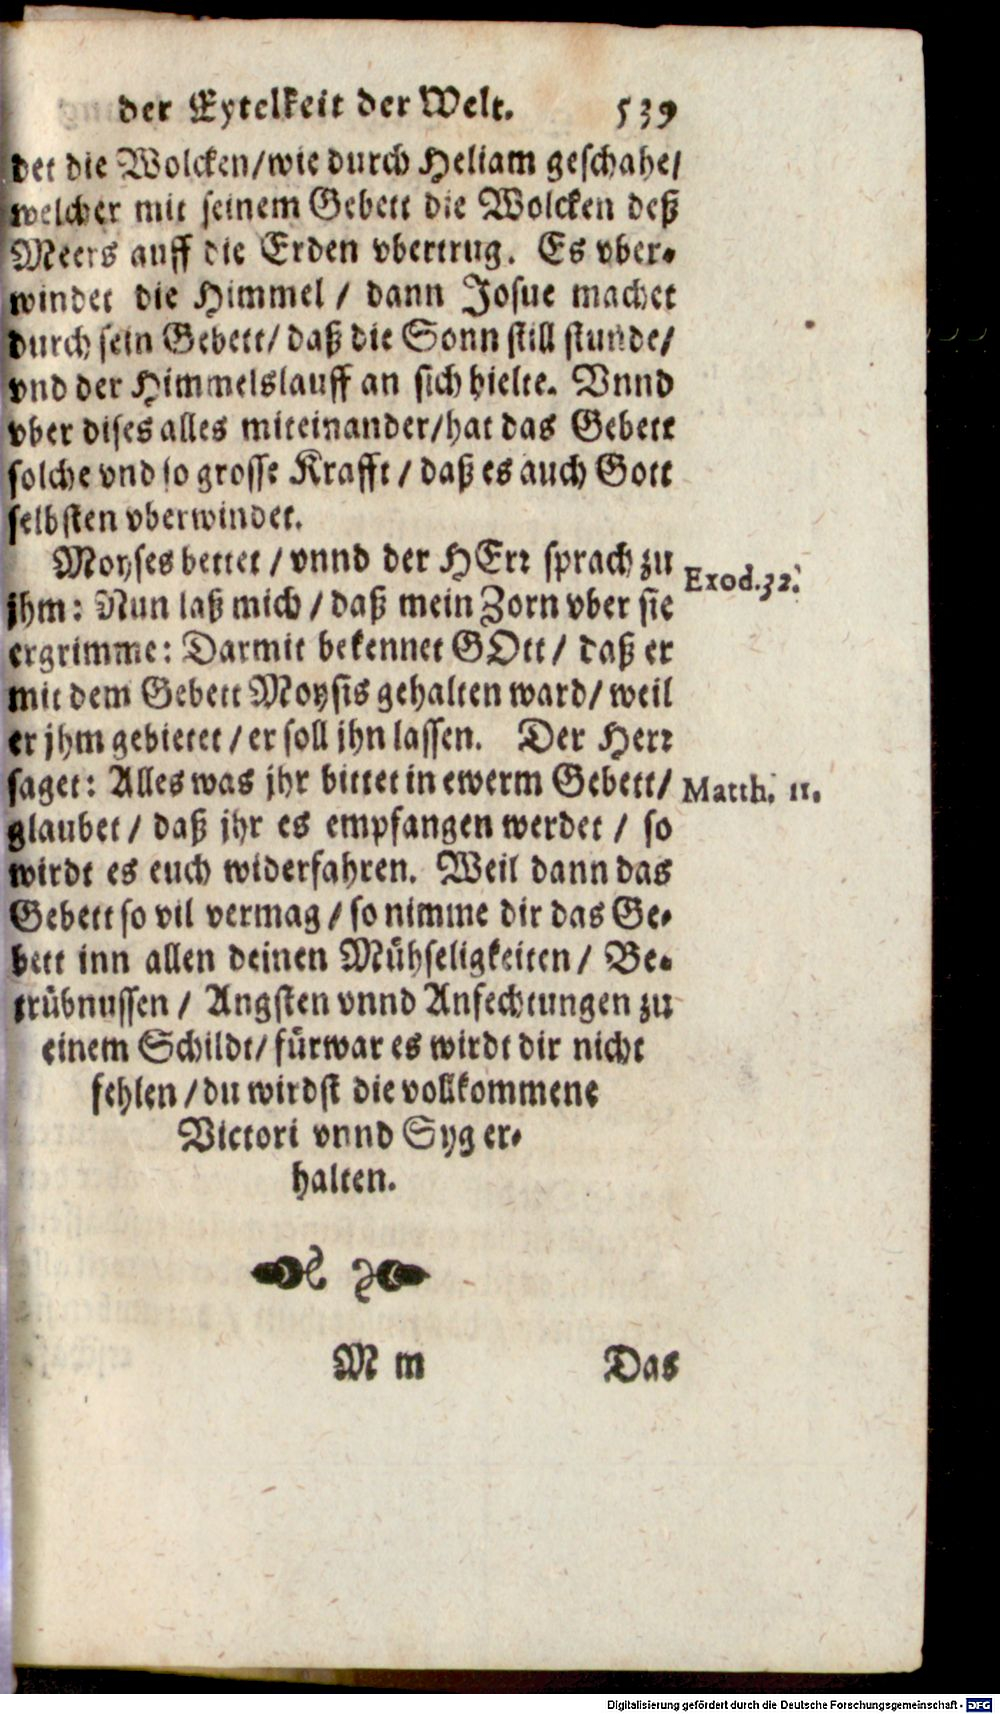 der Eytelkeit der Welt. 539
det die Wolcken/wie durch Heliam geschahe/
welcher mit seinem Gebett die Wolcken deß
Meers auff die Erden vbertrug. Es vber-
windet die Himmel / dann Josue machet
durch sein Gebett/ daß die Sonn still stunde/
vnd der Himmelslauff an sich hielte. Vnnd
vber dises alles miteinander/hat das Gebett
solche vnd so grosse Krafft / daß es auch Gott
selbsten vberwindet.
Moyses bettet / vnnd der HErr sprach zu
jhm: Nun laß mich / daß mein Zorn vber sie
ergrimme: Darmit bekennet GOtt / daß er
mit dem Gebett Moysis gehalten ward/ weil
er jhm gebietet / er soll jhn lassen. Der Herr
saget: Alles was jhr bittet in ewerm Gebett/
glaubet / daß jhr es empfangen werdet / so
wirdt es euch widerfahren. Weil dann das
Gebett so vil vermag / so nimme dir das Ge-
bett inn allen deinen Mühseligkeiten / Be-
trübnussen / Angsten vnnd Anfechtungen zu
einem Schildt/ fürwar es wirdt dir nicht
fehlen / du wirdst die vollkommene
Victori vnnd Syg er-
halten.
Exod.32.
Matth. 11.
M m Das
Digitalisierung gefördert durch die Deutsche Forschungsgemeinschaft - DFG